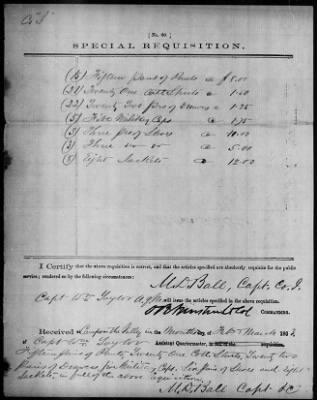 [ No. 40. ]
SPECIAL REQUISITION.
(15) Fifteen pairs of Pants @ $8.00
(21) Twenty One Cott Shirts @
(22) Twenty Two prs of Drawers @ 1.25
(5) Five Military Caps @ 1.75
(3) Three prs of Shoes @ 10.00
(3) Three do do @ 5.00
(8) Eight Jackets @ 12.00
I Certify that the above requisition is correct, and that the articles specified are absolutely requisite for the public
service; rendered so by the following circumstances:
M. D. Ball, Capt. Co.
Capt Wm Taylor will issue the articles specified in the above requisition.
Col
COMMANDING.
Received March 186
of Capt Wm Taylor Assistant Quartermaster,
Fifteen pairs of Pants, Twenty One Cott Shirts, Twenty two
Pairs of Drawers, five Military Caps, Six pairs of Shoes and eight
Jackets in full of the above requisition.
M. D. Ball Capt